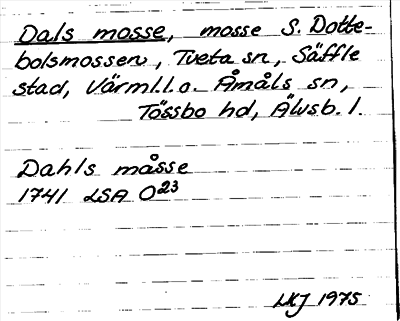 Dals mosse, mosse S. Dotte-
bolsmossen, Tveta sn, Säffle
stad, Värml.l.o. Åmåls sn,
Tössbo hd, Älvsb. l.
Dahls måsse
1741 LSA O23
LKJ 1975